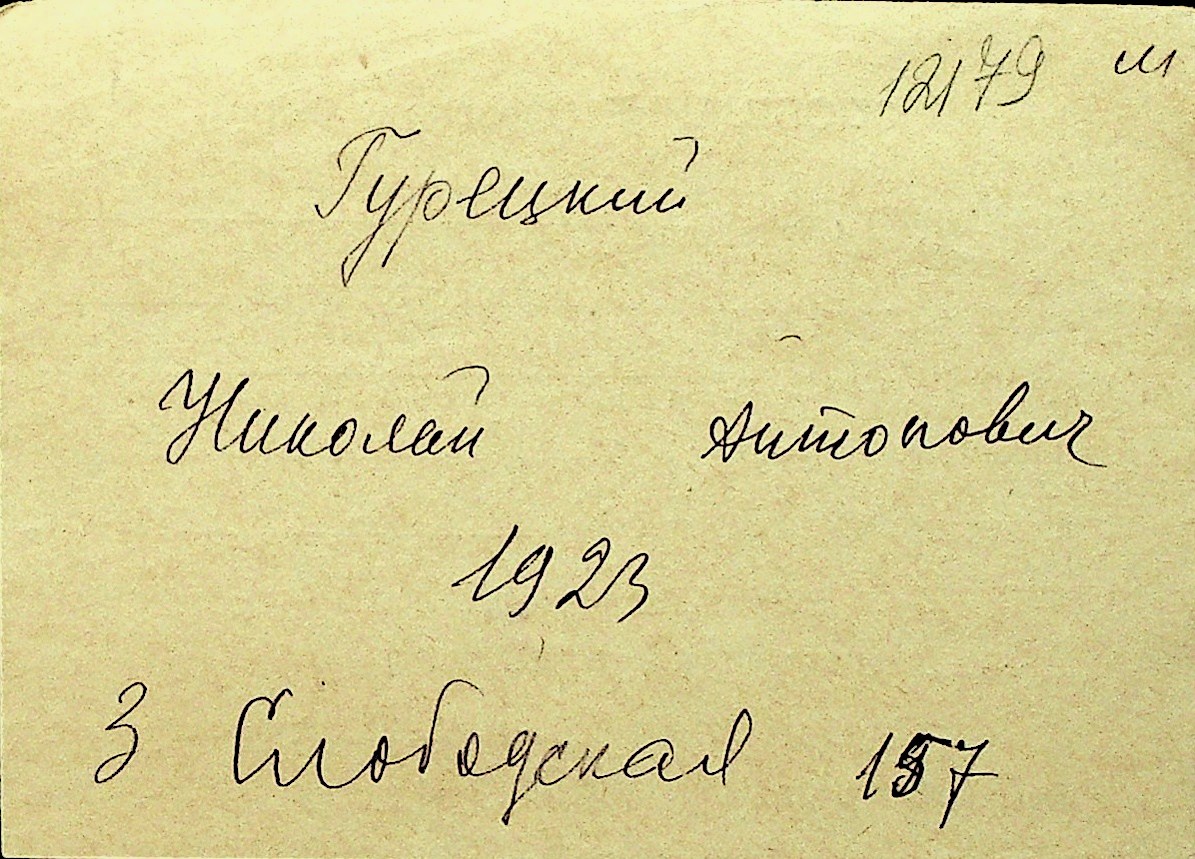 12179 м
Турецкий
Николай Антонович
1923
3 Слободская 157